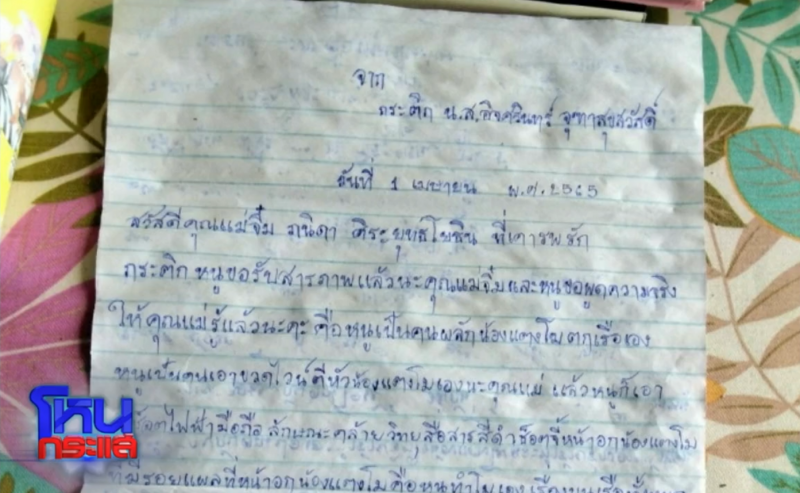 จาก
กระติก น.ส.อิจศรินทร์ จุฑาสุขสวัสดิ์
วันที่ 1 เมษายน พ.ศ. 2565
สวัสดีคุณแม่จิ๋ม ภนิดา ศิระยุทธโยธิน ที่เคารพรัก
กระติก หนูขอรับสารภาพแล้วนะคุณแม่จิ๋มและหนูขอพูดความจริง
ให้คุณแม่รู้แล้วนะคะ คือหนูเป็นคนผลักน้องแตงโมตกเรือเอง
หนูเป็นคนเอาขวดไวน์ตีหัวน้องแตงโมเองนะคุณแม่ แล้วหนูก็เอา
ไฟฟ้ามือถือ ลักษณะคล้ายวิทยุสื่อสารสีดำช็อตจี้หน้าอกน้องแตงโม
ที่มีรอยแผลที่หน้าอกน้องแตงโมคือหนูทำไมเอง
โหนกระแส